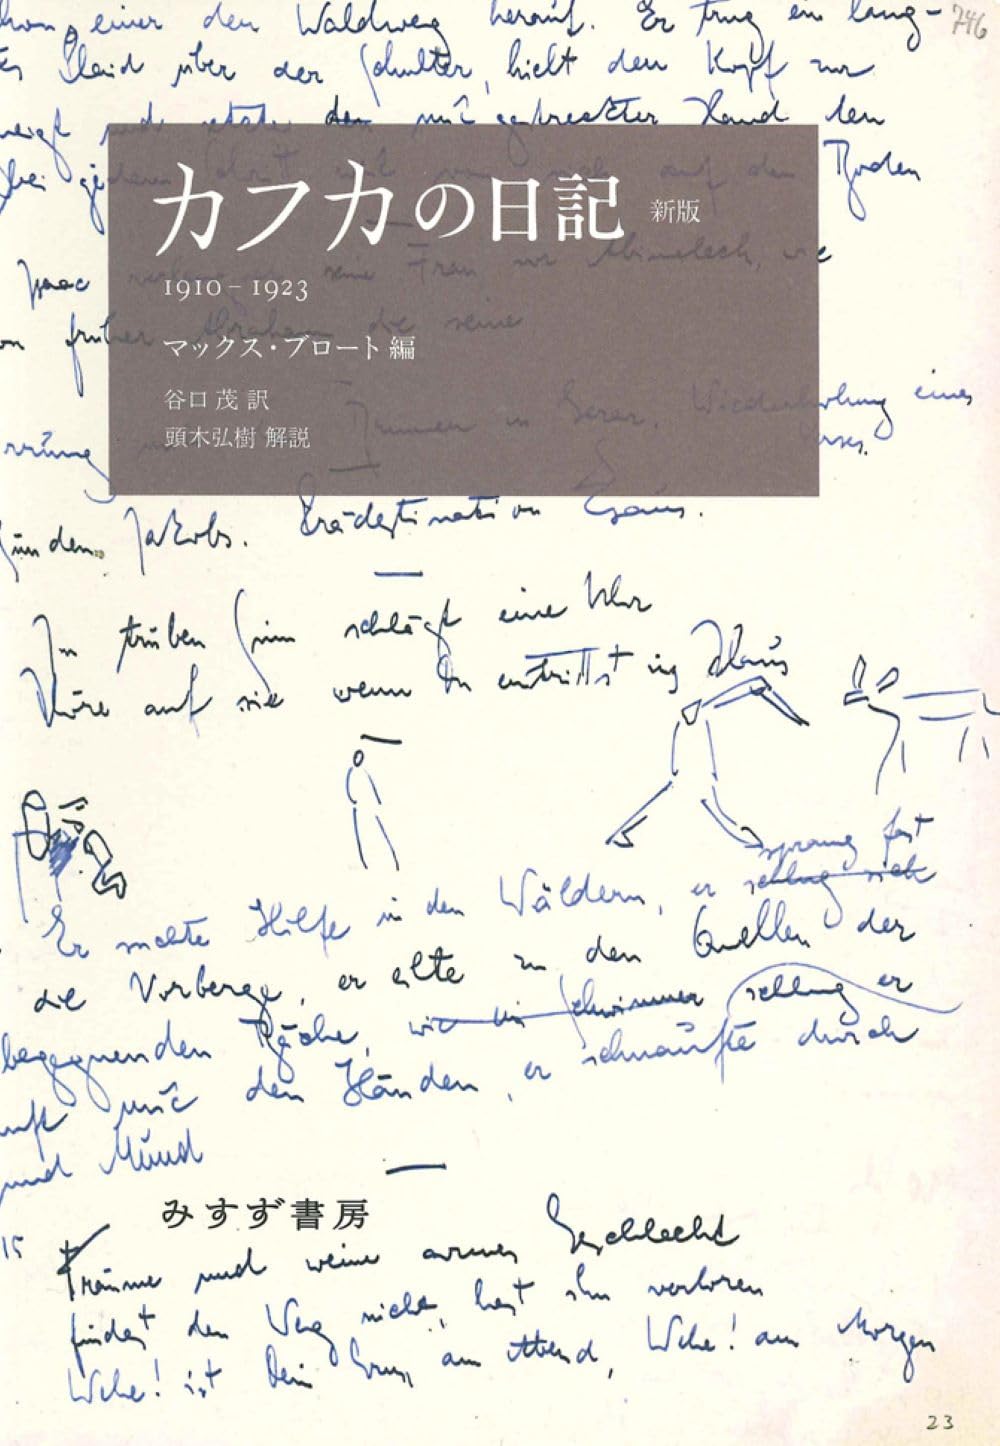 einer den Waldweg herauf. Er trug ein lang-
746
Plaid über der Schulter, hielt den Kopf
und mit gestreckter Hand den
bei auf den Boden
カフカの日記 新版
Isaac seine Frau vor Abimelech, wie
1910–1923
früher Abraham die seine
マックス・ブロート 編
谷口 茂 訳
Brunnen in Gerar. Wiederholung eines
頭木弘樹 解説
Verses.
Sünden Jakobs. Prädestination Esaus.
In trüben Sinn schlägt eine Uhr
Höre auf sie wenn Du eintrittst ins Haus
sprang fast
Er suchte Hilfe in den Wäldern, er schlug sich
die Vorberge, er eilte zu den Quellen der
begegnenden Bäche, wie ein Schwimmer schlug er
Luft mit den Händen, er schnaufte durch
und Mund
みすず書房
15
Träume und weine armes Geschlecht
findest den Weg nicht, hast ihn verloren
Wehe! ist Dein Gruss am Abend, Wehe! am Morgen
23